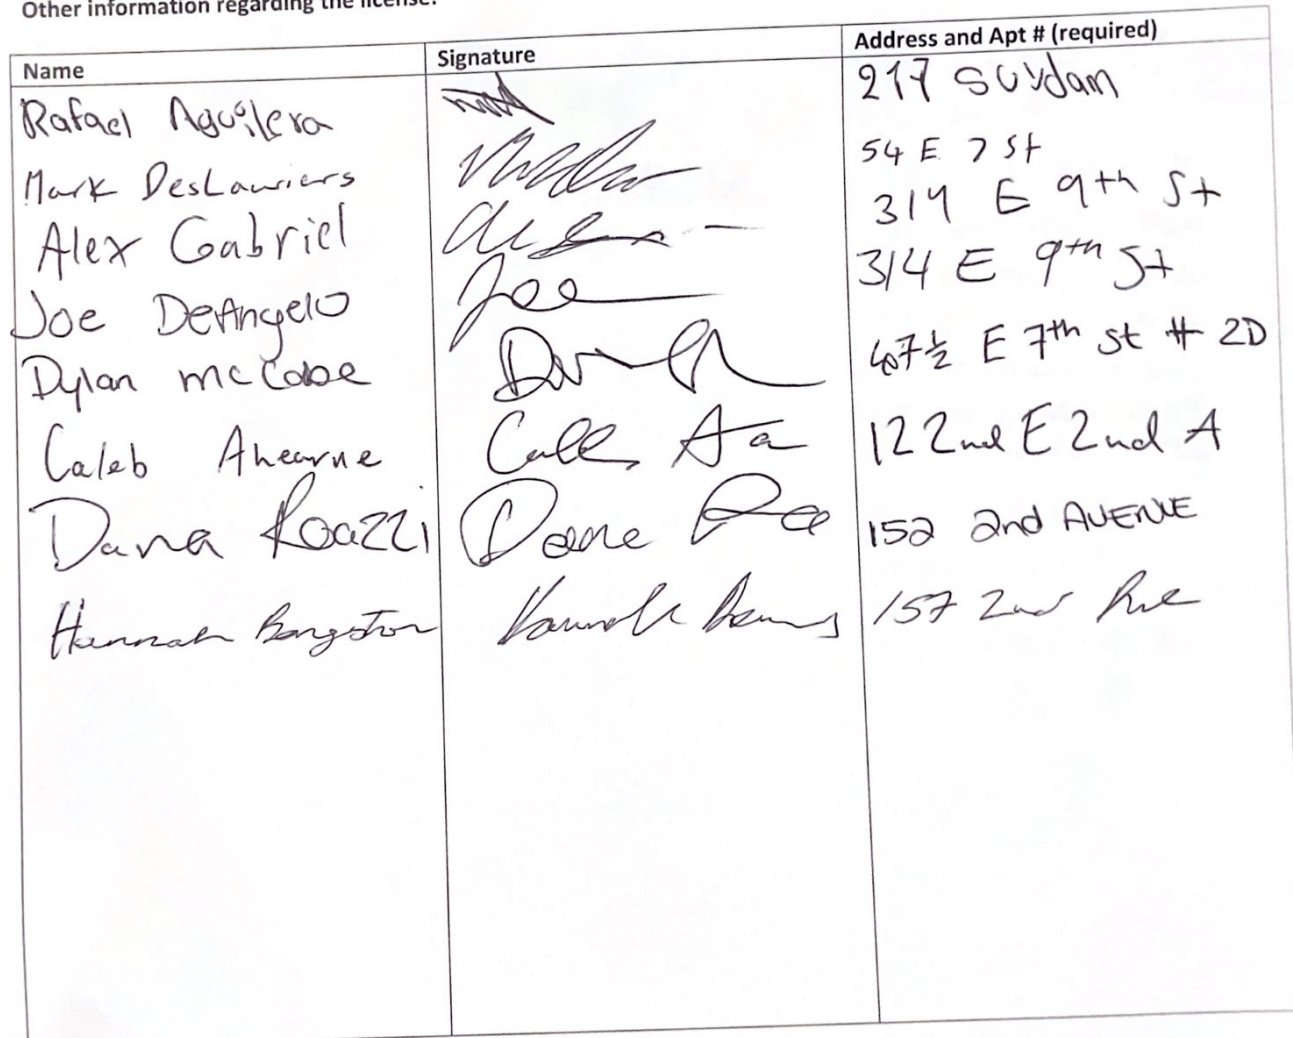 Other information regarding the license:
Name Signature Address and Apt # (required)
Rafael Aguilera 217 Suydam
Mark DesLauriers 54 E 7 St
Alex Gabriel 314 E 9th St
Joe DeAngelo Joe 314 E 9th St
Dylan McCabe 407½ E 7th St # 2D
Caleb Ahearne 122nd E 2nd A
Dana Roazzi 152 2nd AVENUE
Hannah 157 2nd Ave